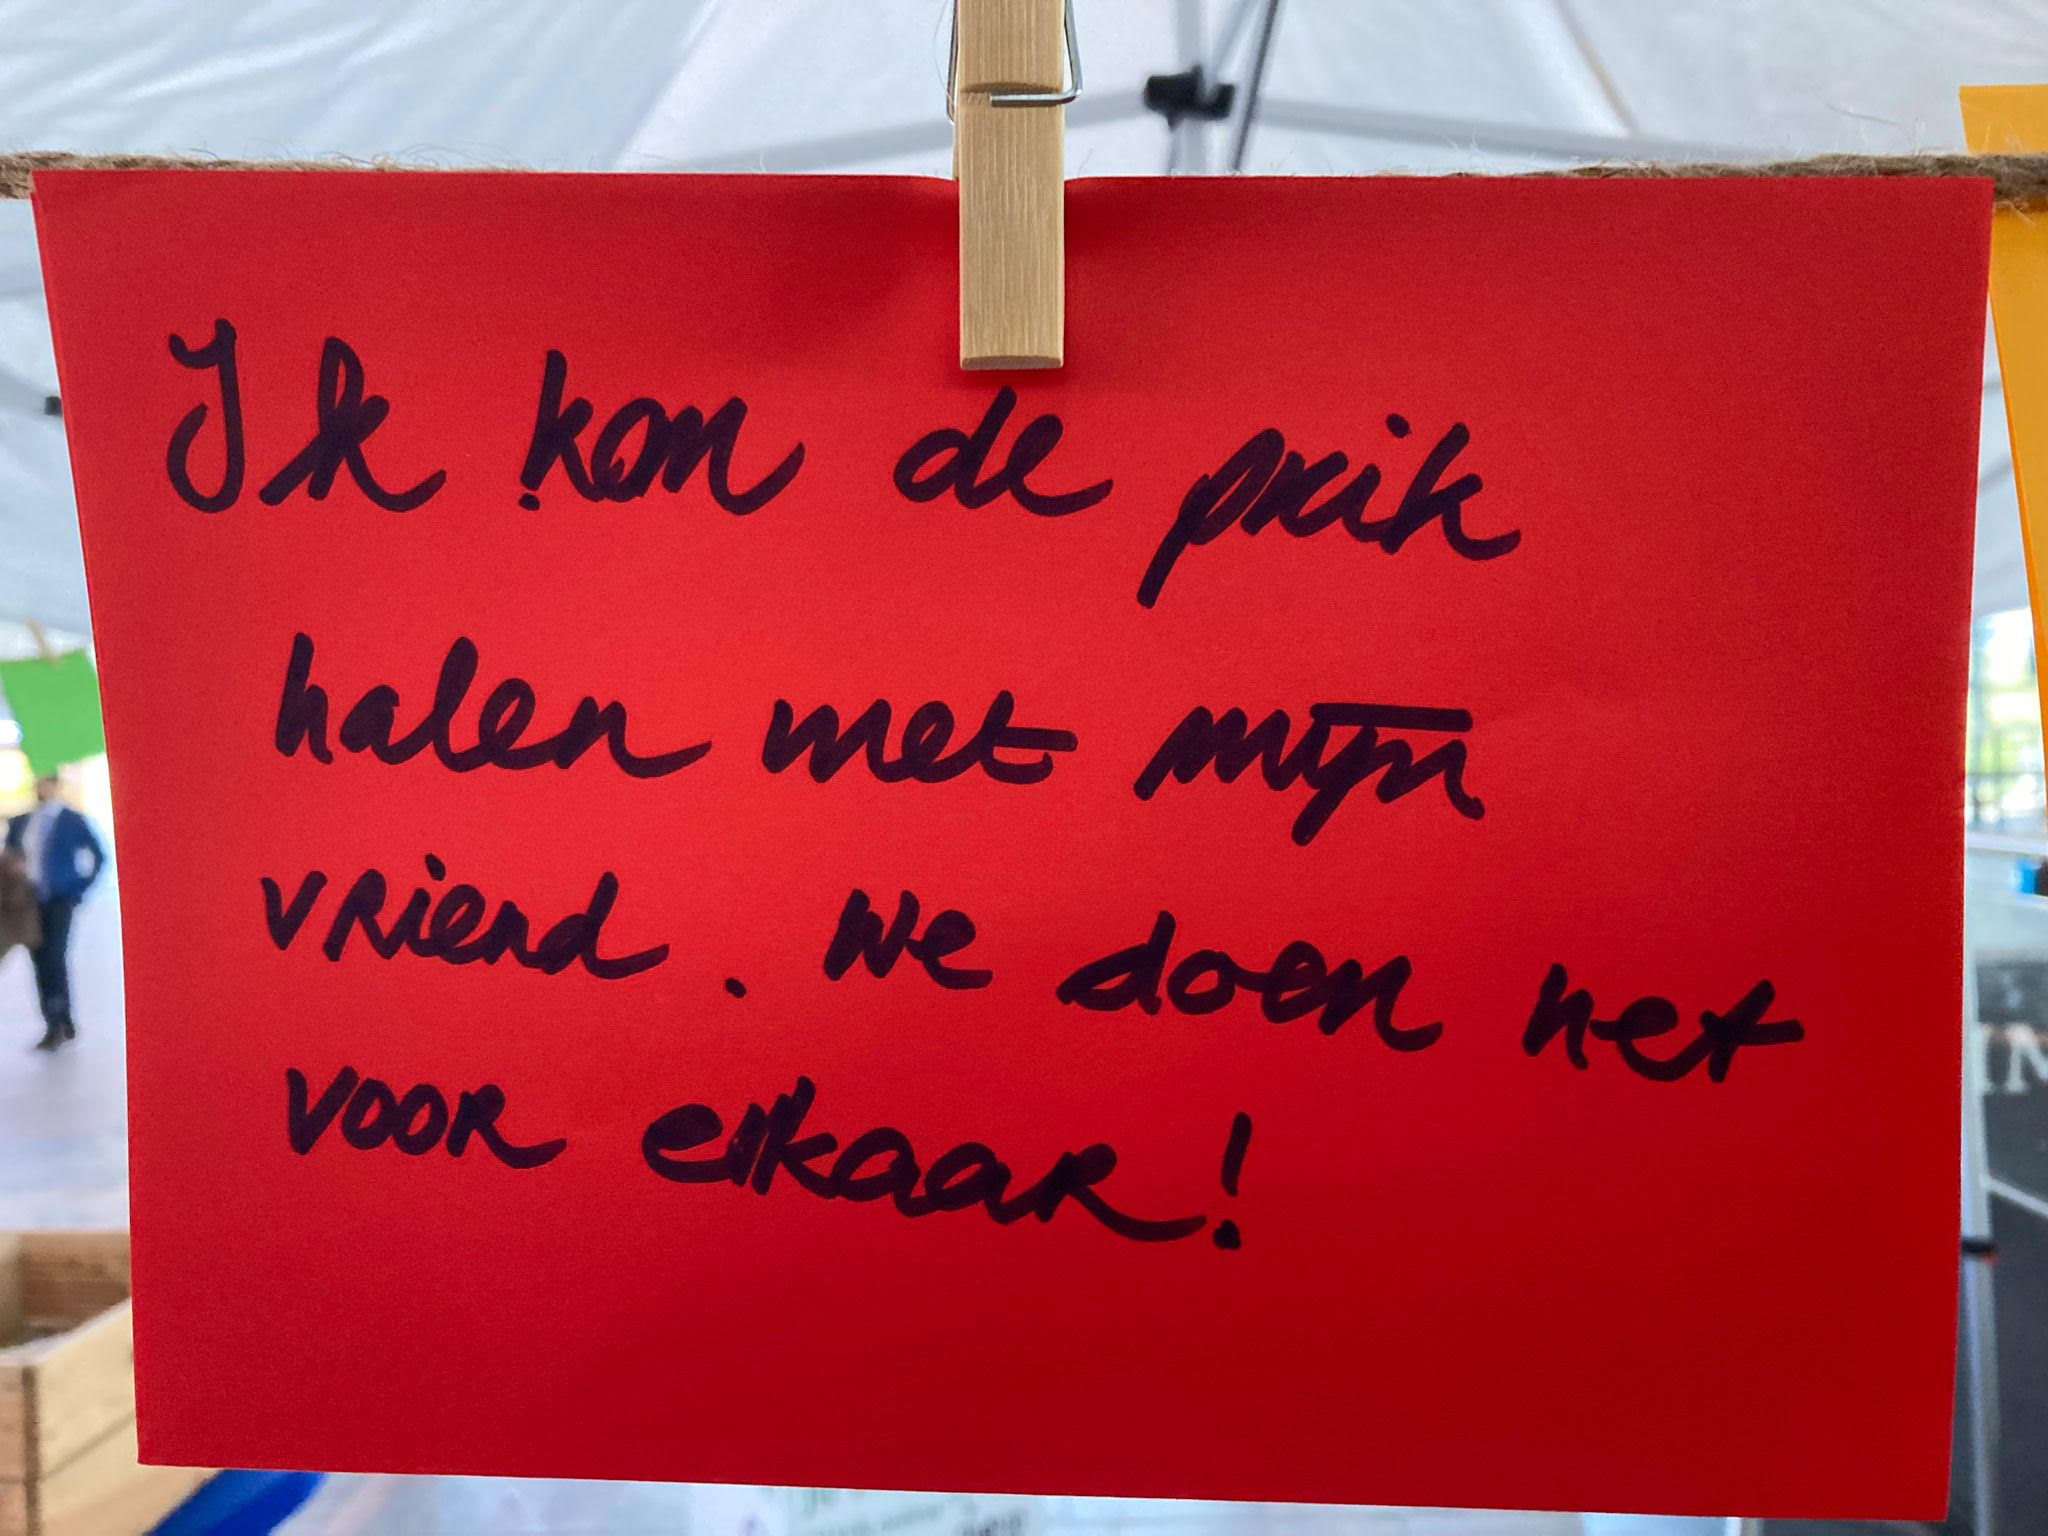 Ik kon de prik
halen met mijn
vriend. We doen het
voor elkaar!